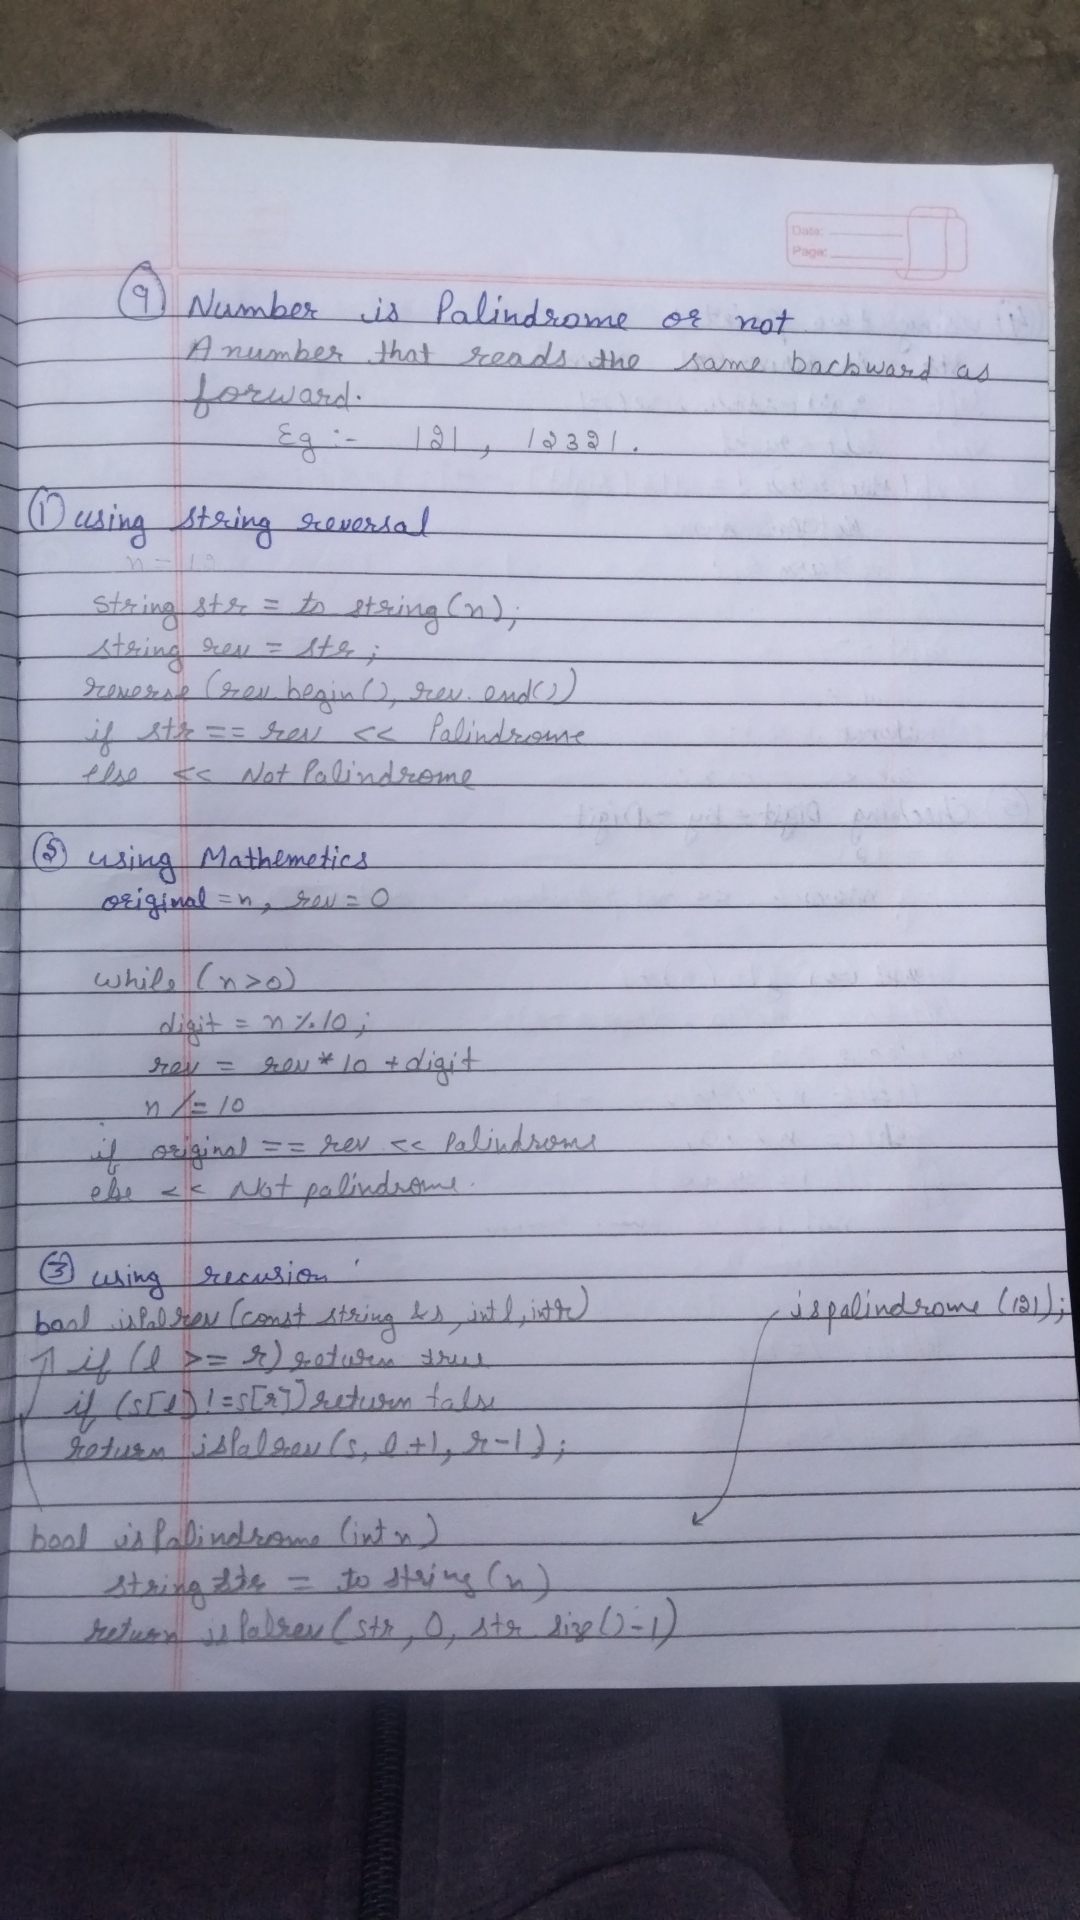 Date:
Page:
9 Number is Palindrome or not
A number that reads the same backward as
forward.
Eg :- 121, 12321.
① using string reversal
n = 12
string str = to string(n);
string rev = str;
reverse (rev.begin(), rev.end())
if str == rev << Palindrome
else << Not Palindrome
② using Mathemetics
original = n, rev = 0
while (n>0)
digit = n % 10;
rev = rev * 10 + digit
n /= 10
if original == rev << Palindrome
else << Not palindrome.
③ using recusion
bool isPalrev (const string &s, int l, int r)
ispalindrome (121);
if (l >= r) return true
if (s[l] != s[r]) return false
return isPalrev(s, l+1, r-1);
bool isPalindrome (int n)
string str = to string (n)
return isPalrev (str, 0, str size()-1)